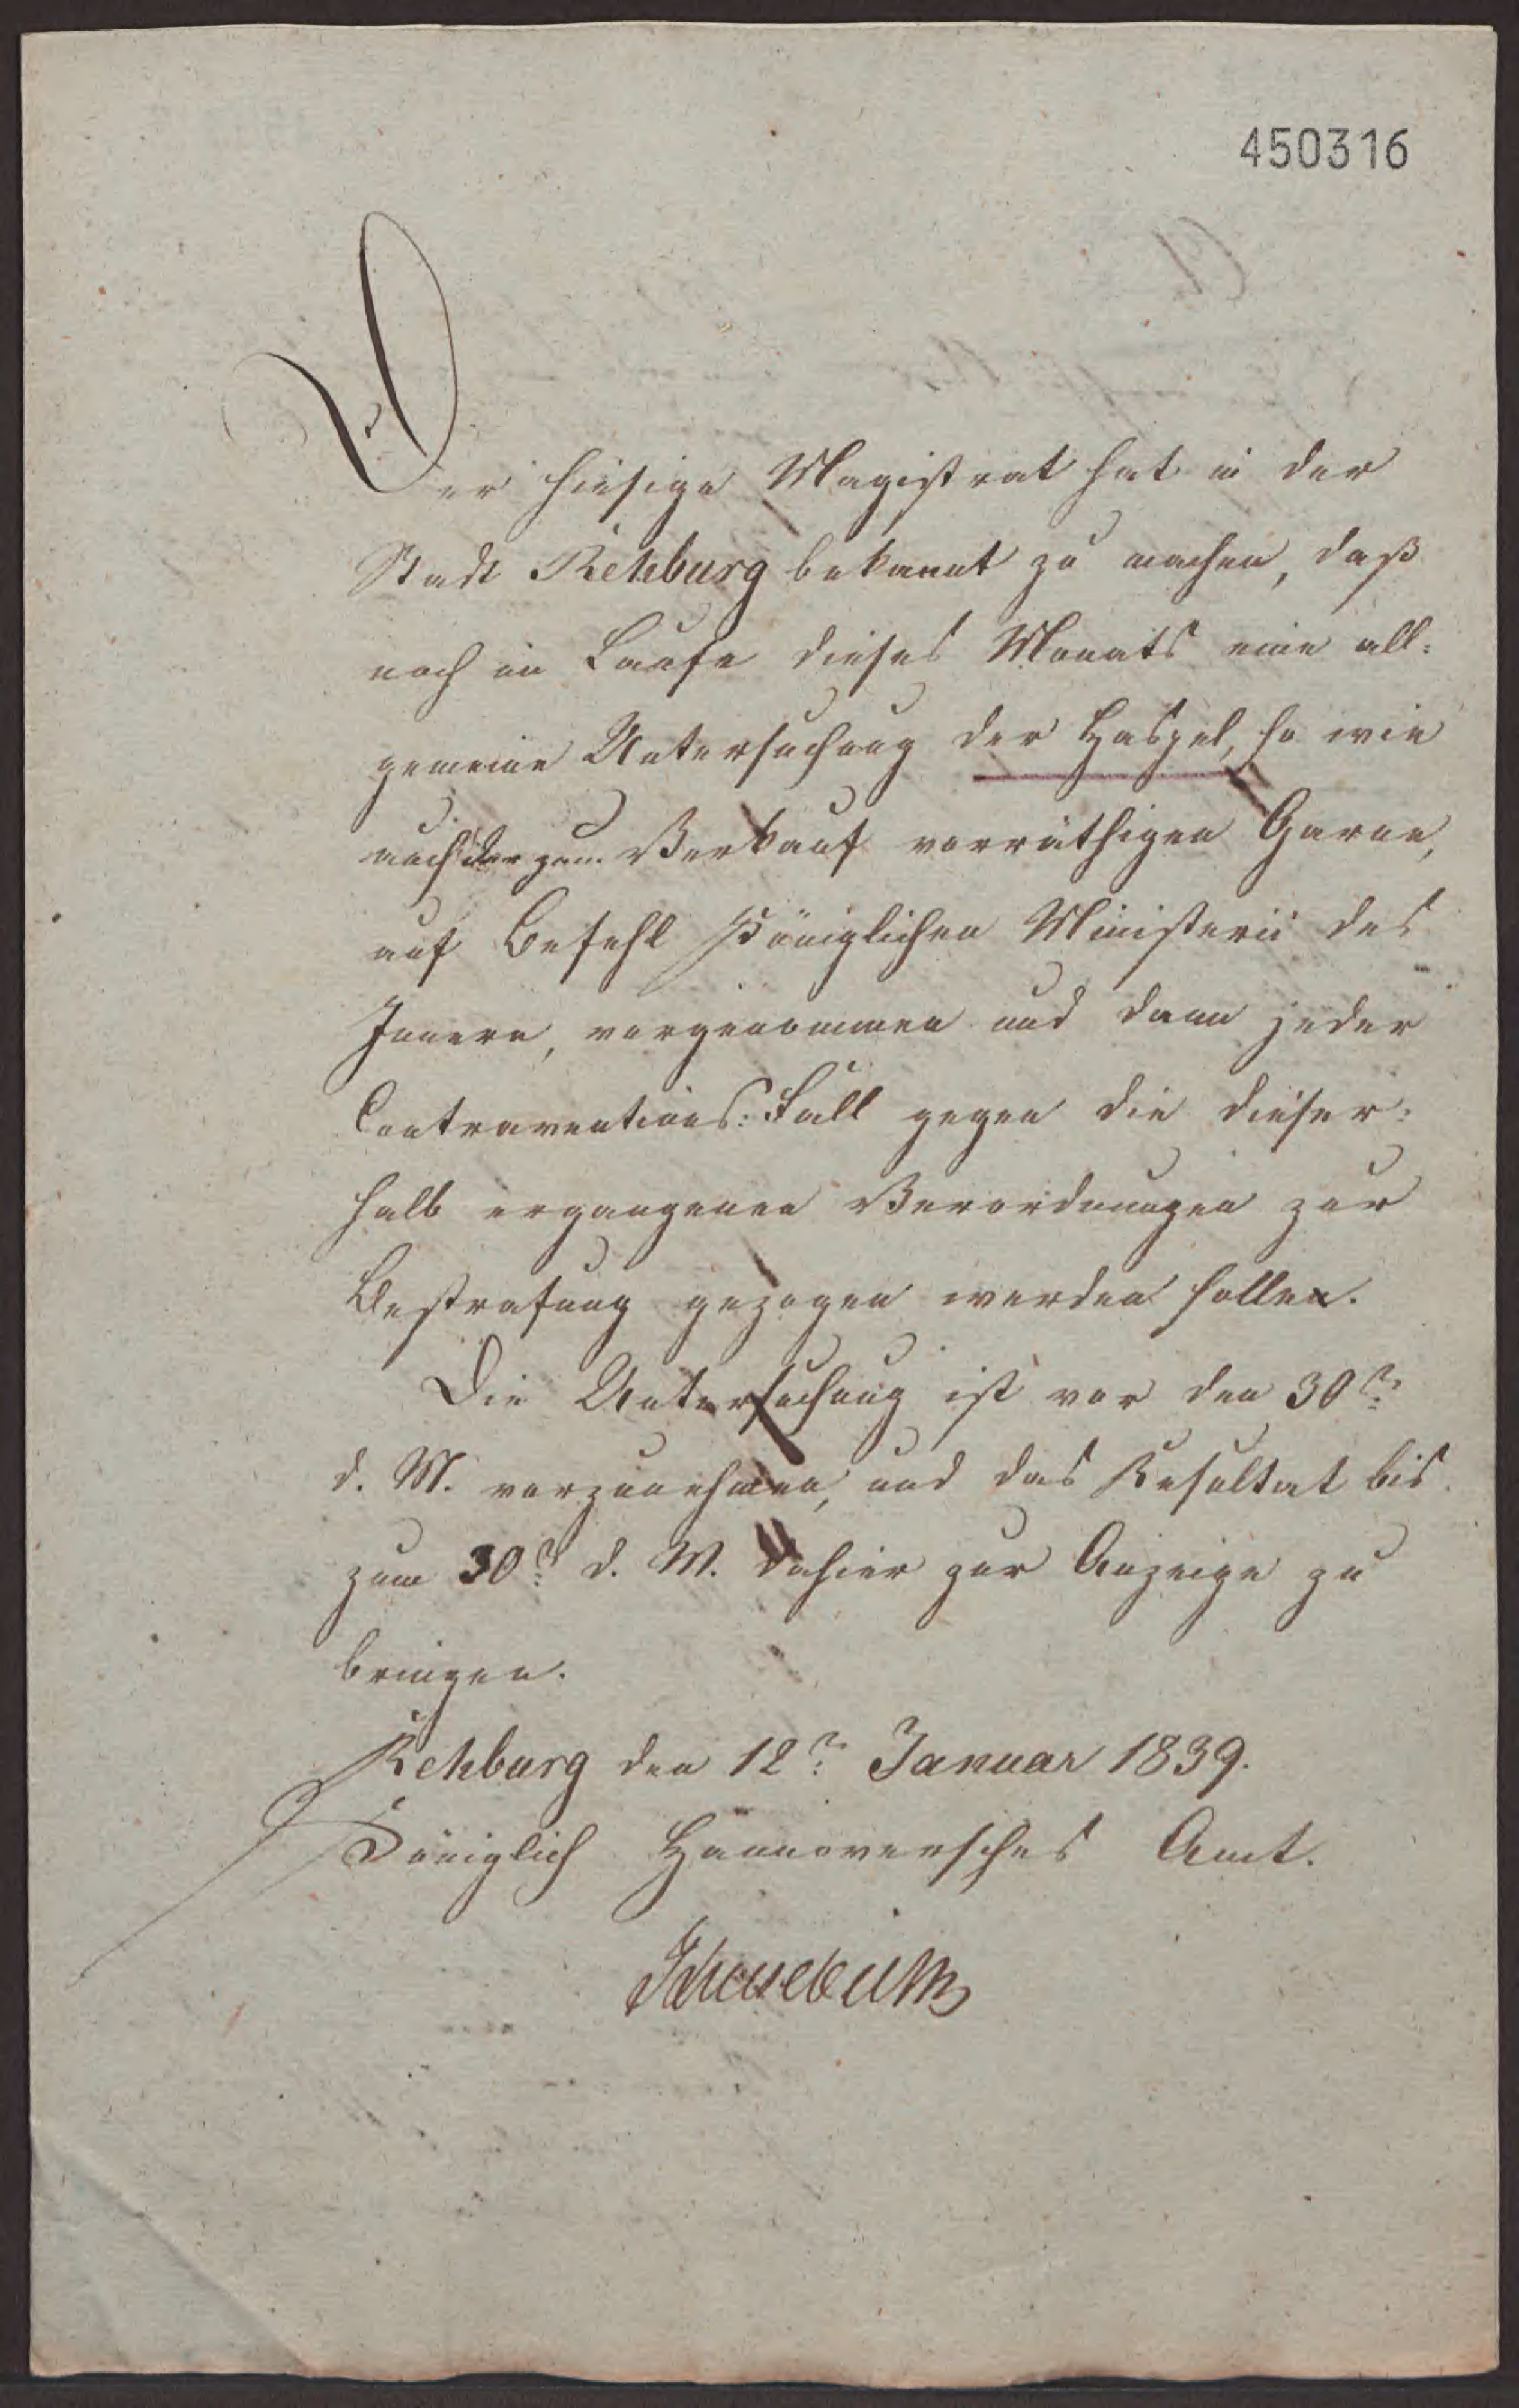 450316
Der hiesige Magistrat hat in der
Stadt Rehburg bekannt zu machen, daß
noch im Laufe dieses Monats eine all=
gemeine Untersuchung der Haspel, so wie
auch der zum Verkauf vorräthigen Garne,
auf Befehl Königlichen Ministerii des
Innern, vorgenommen und dann jeder
Contraventions=Fall gegen die dieser=
halb ergangenen Verordnungen zur
Bestrafung gezogen werden sollen.
Die Untersuchung ist vor den 30n
d. M. vorzunehmen, und das Resultat bis
zum 30n d. M. dahier zur Anzeige zu
bringen.
Rehburg den 12n Januar 1839.
Königlich Hannoversches Amt.